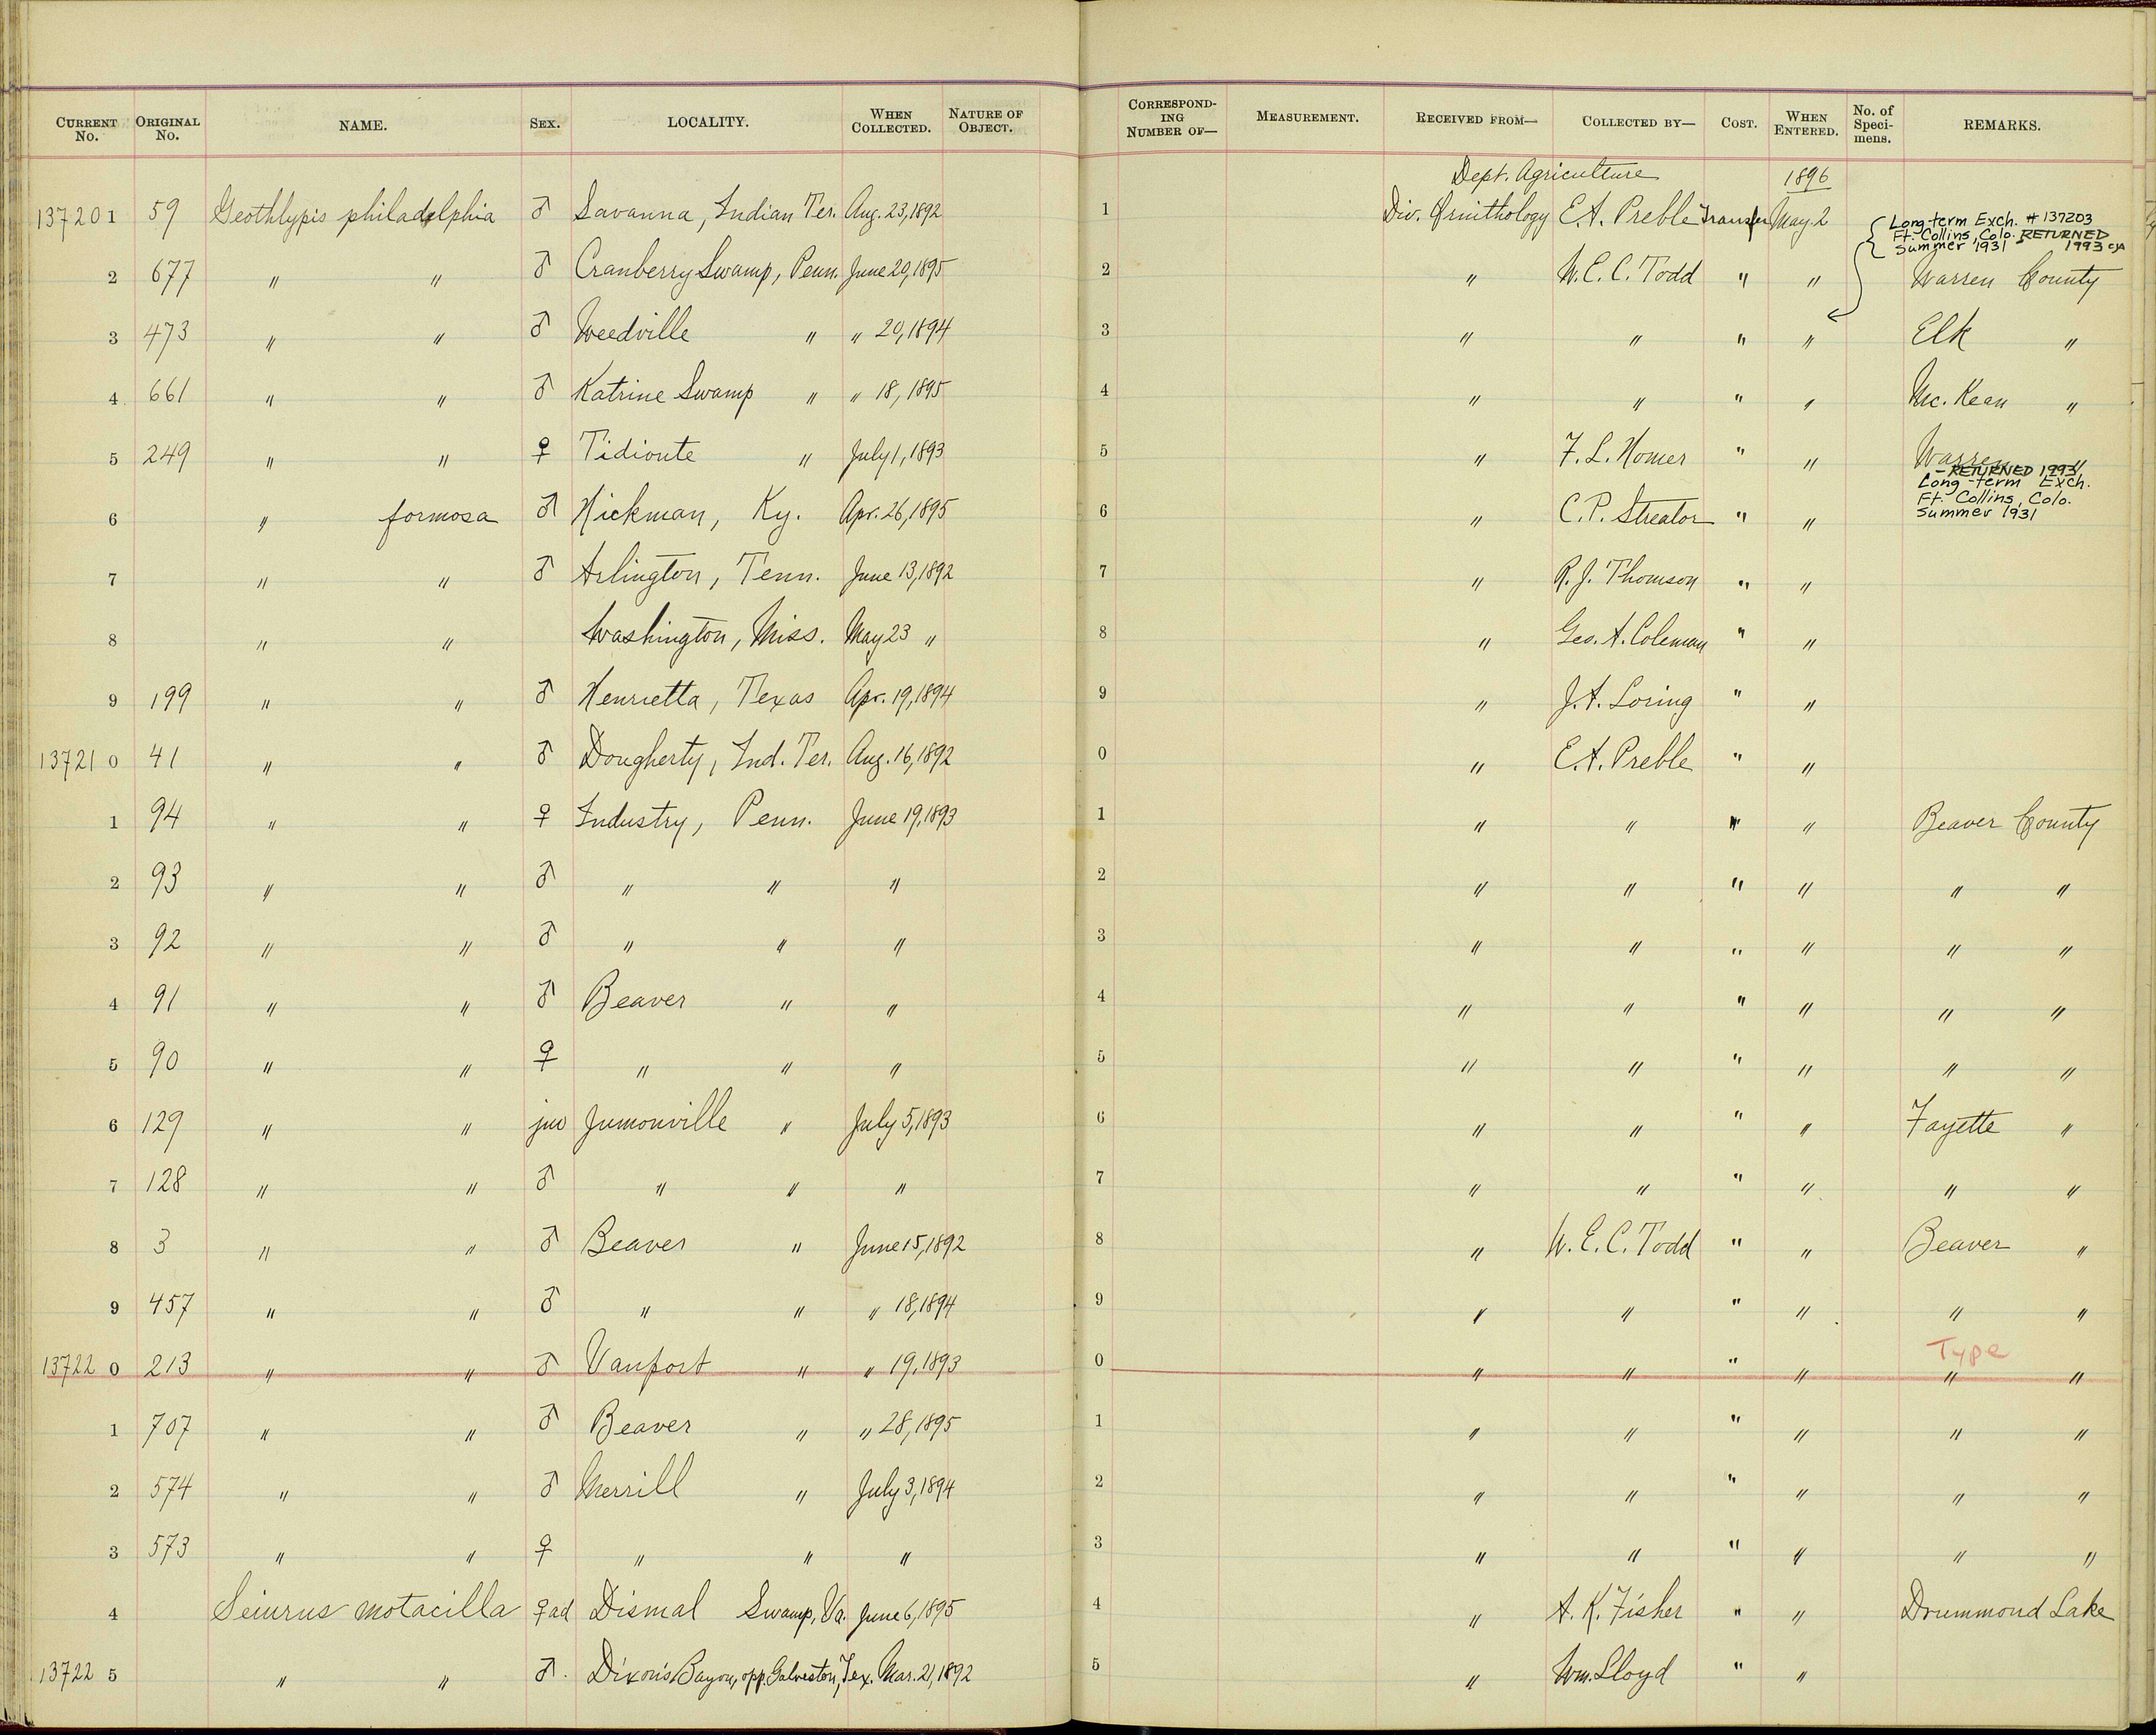 CURRENT No. ORIGINAL No. NAME. SEX. LOCALITY. WHEN COLLECTED. NATURE OF OBJECT. CORRESPONDING NUMBER OF— MEASUREMENT. RECEIVED FROM— COLLECTED BY— COST. WHEN ENTERED. No. of Specimens. REMARKS.
Dept. Agriculture 1896
137201 59 Geothlypis philadelphia ♂ Savanna, Indian Ter. Aug. 23, 1892 1 Div. Ornithology E. A. Preble Transfer May 2
Long-term Exch. # 137203
Ft. Collins, Colo. RETURNED
Summer 1931 1993 CJA
2 677 " " ♂ Cranberry Swamp, Penn. June 20, 1895 2 " W. E. C. Todd " " Warren County
3 473 " " ♂ Weedville " " 20, 1894 3 " " " " Elk "
4 661 " " ♂ Katrine Swamp " " 18, 1895 4 " " " " Mc. Kean "
5 249 " " ♀ Tidioute " July 1, 1893 5 " F. L. Homer " " Warren "
- RETURNED 1993
Long-term Exch.
Ft. Collins, Colo.
Summer 1931
6 " formosa ♂ Hickman, Ky. Apr. 26, 1895 6 " C. P. Streator " "
7 " " ♂ Arlington, Tenn. June 13, 1892 7 " R. J. Thomson " "
8 " " Washington, Miss. May 23 " 8 " Geo. A. Coleman " "
9 199 " " ♂ Henrietta, Texas Apr. 19, 1894 9 " J. A. Loring " "
137210 41 " " ♂ Dougherty, Ind. Ter. Aug. 16, 1892 0 " E. A. Preble " "
1 94 " " ♀ Industry, Penn. June 19, 1893 1 " " " " Beaver County
2 93 " " ♂ " " " 2 " " " " " "
3 92 " " ♂ " " " 3 " " " " " "
4 91 " " ♂ Beaver " " 4 " " " " " "
5 90 " " ♀ " " " 5 " " " " " "
6 129 " " juv Jumonville " July 5, 1893 6 " " " " Fayette "
7 128 " " ♂ " " " 7 " " " " " "
8 3 " " ♂ Beaver " June 15, 1892 8 " W. E. C. Todd " " Beaver "
9 457 " " ♂ " " " 18, 1894 9 " " " " " "
Type
137220 213 " " ♂ Vanport " " 19, 1893 0 " " " " " "
1 707 " " ♂ Beaver " " 28, 1895 1 " " " " " "
2 574 " " ♂ Merrill " July 3, 1894 2 " " " " " "
3 573 " " ♀ " " " 3 " " " " " "
4 Seiurus motacilla ♀ ad Dismal Swamp, Va. June 6, 1895 4 " A. K. Fisher " " Drummond Lake
137225 " " ♂. Dixon's Bayou, opp. Galveston, Tex. Mar. 21, 1892 5 " Wm. Lloyd " "